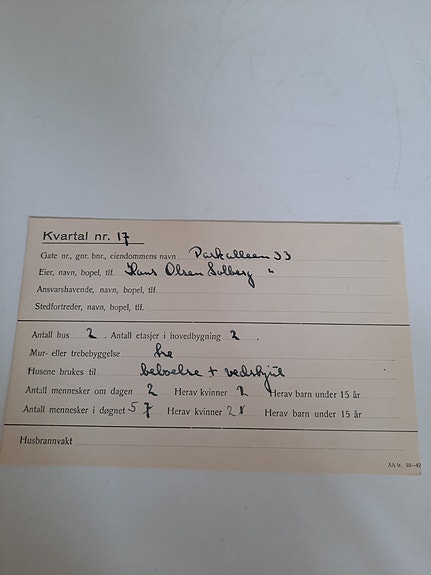 Kvartal nr. 17
Gate nr., gnr. bnr., eiendommens navn Parkalleen 33
Eier, navn, bopel, tlf. Hans Olsen Solberg "
Ansvarshavende, navn, bopel, tlf.
Stedfortreder, navn, bopel, tlf.
Antall hus 2 . Antall etasjer i hovedbygning 2 .
Mur- eller trebebyggelse tre
Husene brukes til beboelse + vedskjul
Antall mennesker om dagen 2 Herav kvinner 2 Herav barn under 15 år
Antall mennesker i døgnet 5 7 Herav kvinner 2 Herav barn under 15 år
Husbrannvakt
AA tr. 10-42